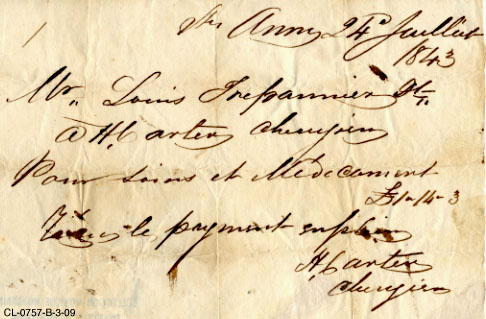 1
Ste Anne 24e Juillet
1843
Mr. Louis Trepannier Dt
à H. Carter chirurgien
Pour soins et Médicament
£1-14-3
le payment en plein
H Carter
chirurgien
CL-0757-B-3-09